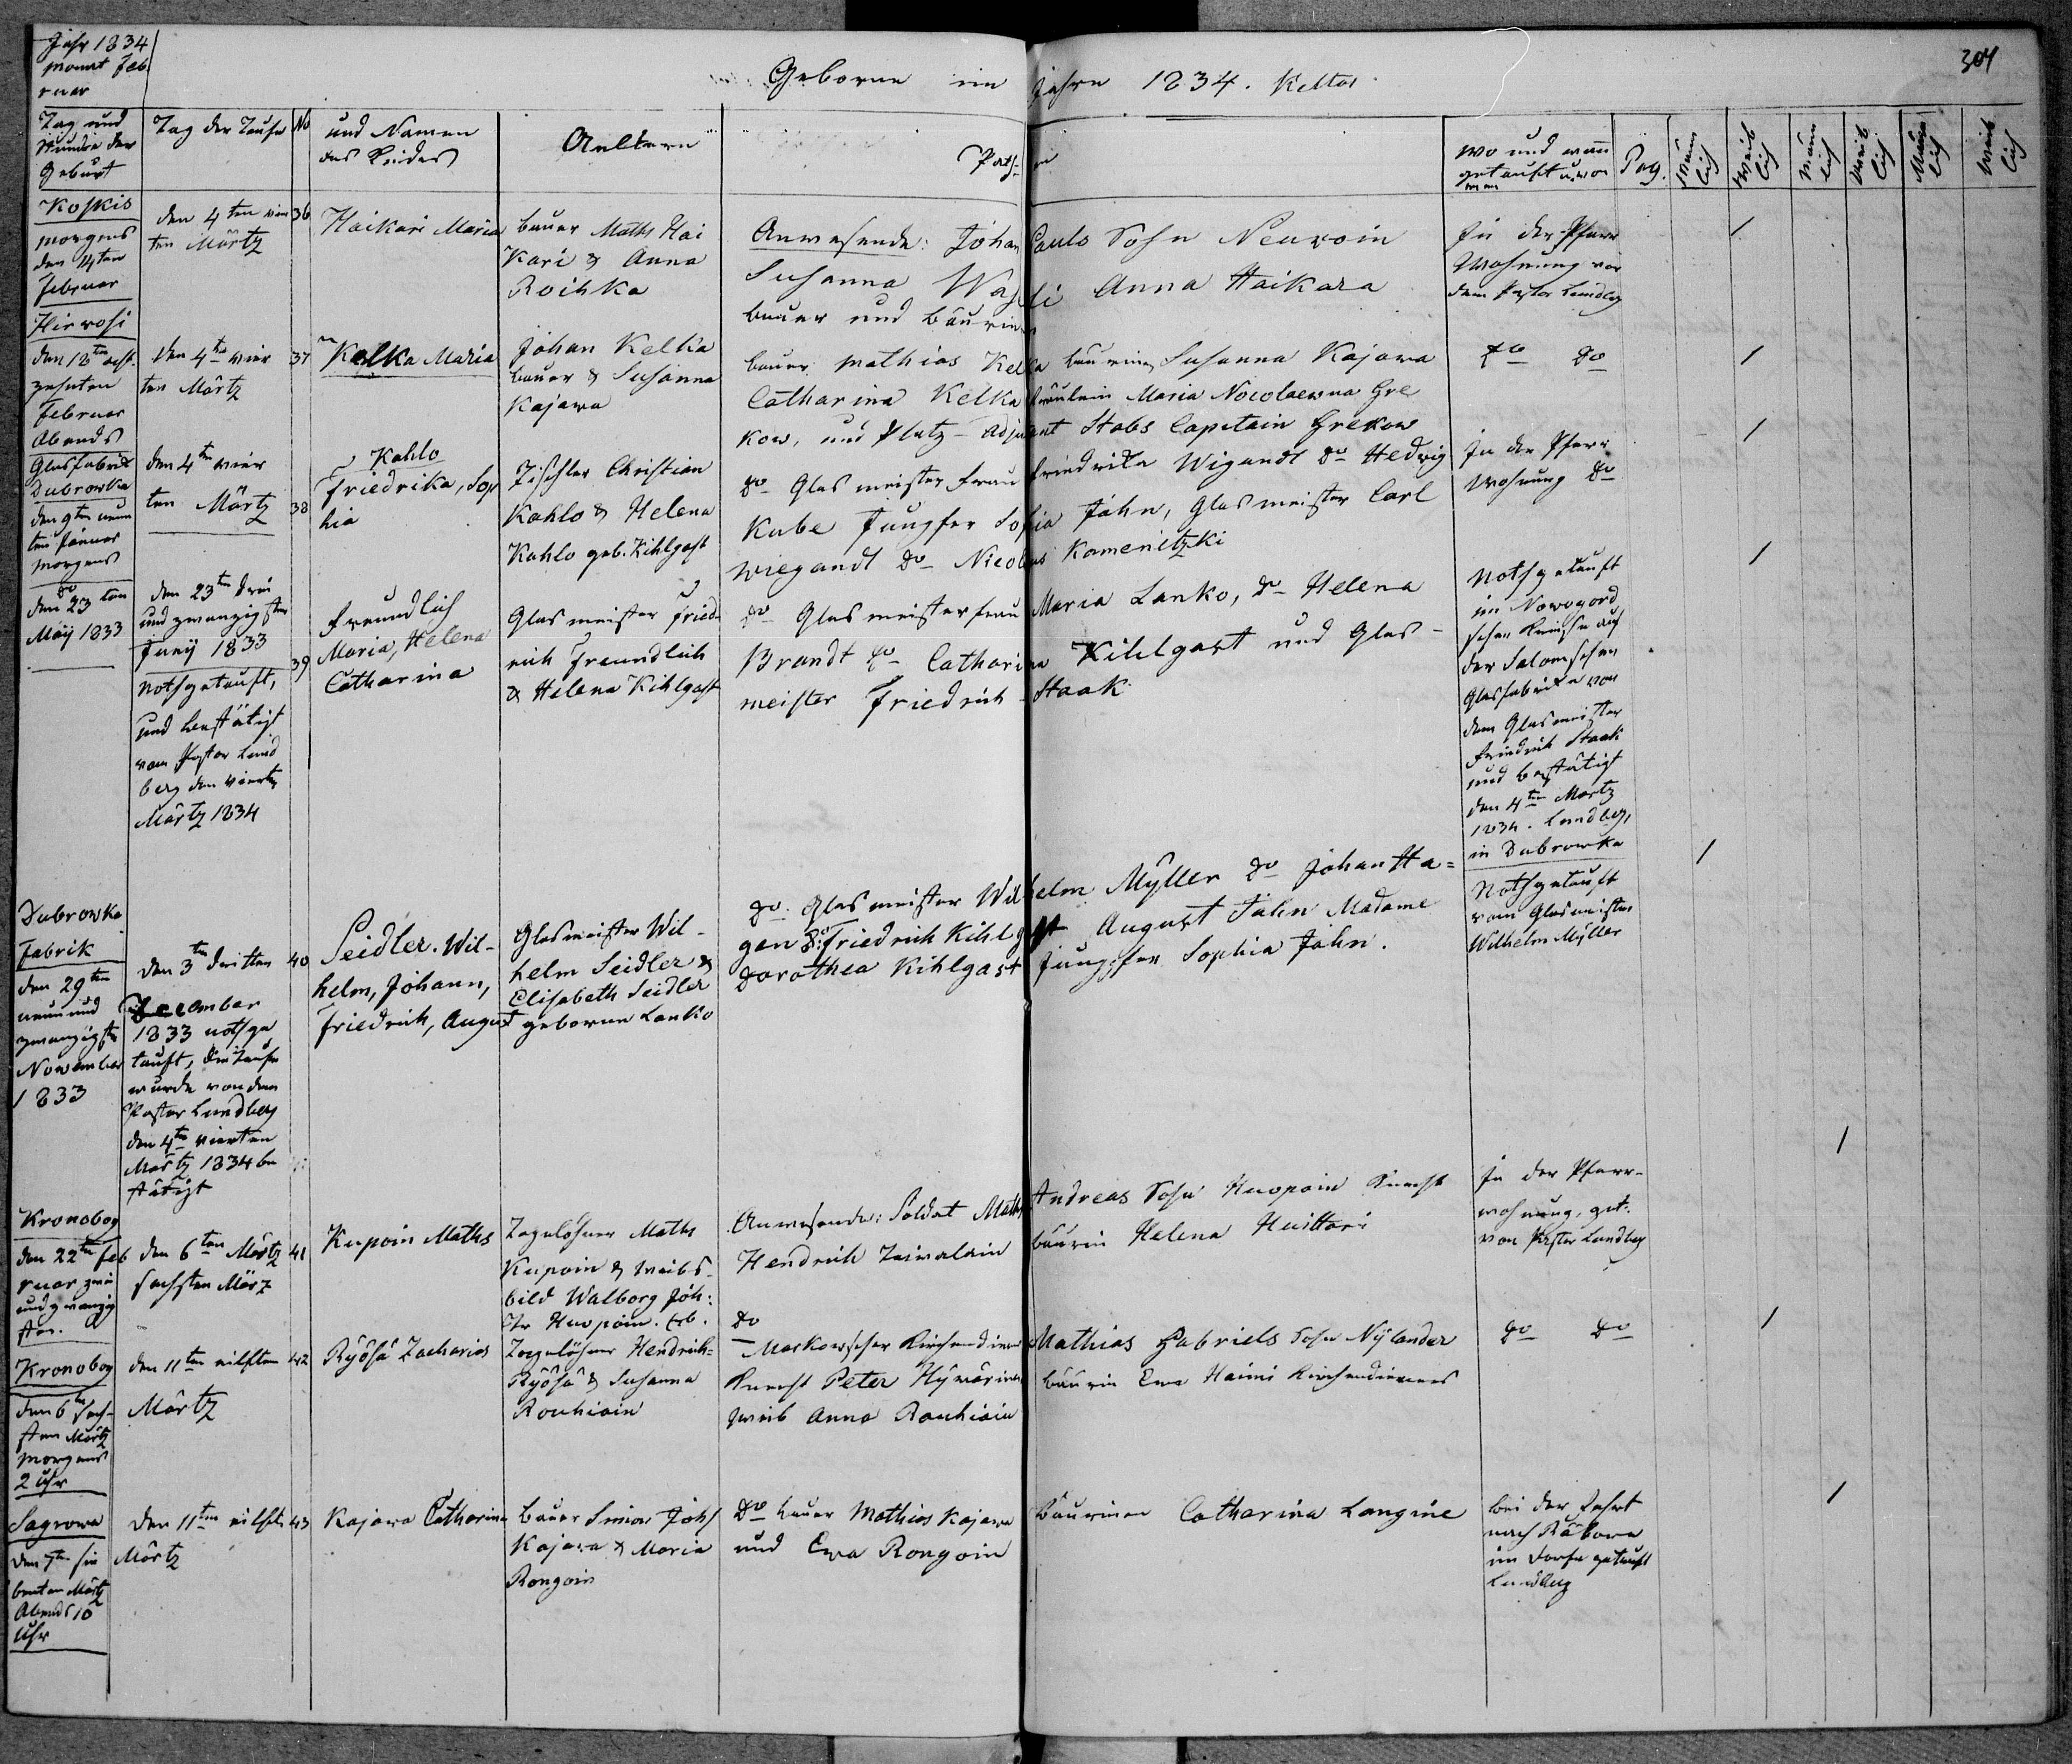 Jahr 1834
Monat Feb
ruar
Geborne im Jahre 1834. Keltos
304
Tag und
Stunde der
Geburt
Tag der Taufe
No
und Namen
des Kindes
Aeltern
Path-
en
wo und wann
getauft u. von
wem
Pag.
Männ
lich
Weib
lich
Männ
lich
Weib
lich
Männ
lich
Weib
lich
Koskis
morgens
den 14ten
Februar
den 4ten vier
ten Märtz
36
Haikari Maria
Bauer Maths Hai
Kari & Anna
Roihka
Anwesende: Johan Pauls Sohn Neuvoin
Susanna Anna Haikara
Bauer und Bäurinen
In der Pfarr
Wohnung von
dem Pastor Lundberg
1
Hirvosi
den 18ten acht-
zehnten
Februar
Abends
den 4ten vier
ten Märtz
37
Kelka Maria
Johan Kelka
Bauer & Susanna
Kajawa
Bauer Mathias Kelka Bäurinen Susanna Kajawa
Catharina Kelka Fräulein Maria Nicolaewna Gre
kow, und Platz-Adjudant Stabs Capitain Grekow
do do
1
Glasfabrik
Dubrowka
den 9ten neun
ten Januar
morgens
den 4ten vier
ten Märtz
38
Kahlo
Friedrika, Sop
hia
Tischler Christian
Kahlo & Helena
Kahlo geb. Kihlgast
do Glasmeister Frau Friedrika Wigandt do Hedwig
Kube Jungfer Sofia Jahn, Glasmeister Carl
Wiegandt do Nicolaus Kamenitzki
In der Pfarr
Wohnung do
1
do
den 23ten
Maÿ 1833
den 23ten drei
und zwanzigsten
Junÿ 1833
Nothgetauft,
und bestätigt
vom Pastor Lund
berg den vierten
Märtz 1834
39
Freundlich
Maria, Helena
Catharina
Glasmeister Fried-
rich Freundlich
& Helena Kihlgast
do Glasmeisterfrau Maria Lanko, do Helena
Brandt do Catharina Kihlgast und Glas-
meister Friedrich Staak
Nothgetauft
im Nowogord
schen Kreise auf
der Salomschen
Glasfabrike von
dem Glasmeister
Friedrich Staak
und bestätigt
den 4ten Märtz
1834. Lundberg,
in Dubrowka
1
Dubrowka
Fabrik
den 29ten
neun und
zwanzigsten
November
1833
den 3ten dritten
December
1833 nothge
tauft, die Taufe
wurde von dem
Pastor Lundberg
den 4ten vierten
Märtz 1834 be
stätigt
40
Seidler. Wil-
helm, Johann,
Friedrich, August
Glasmeister Wil-
helm Seidler &
Elisabeth Seidler
geborne Lanko
do. Glasmeister Wilhelm Mÿller do Johan Ha=
gen do: Friedrich Kihlgast August Jahn Madame
Dorothea Kihlgast Jungfer Sophia Jahn.
Nothgetauft
vom Glasmeister
Wilhelm Mÿller
1
Kronobog
den 22ten Feb
ruar zwei
und zwanzig
sten.
den 6ten Märtz
sechsten März
41
Kupoin Maths
Tagelöhner Maths
Kupoin & Weibs-
bild Walborg Joh:
Tr Huopoin.
Anwesende: Soldat Maths Andreas Sohn Huopoin Knecht
Hendrich Taivalain Bäurin Helena Huittari
In der Pfarr-
wohnung, get.
von Pastor Lundberg
1
Kronobog
den 6ten sech-
sten Märtz
morgens
2 Uhr
den 11ten eilften
Märtz
42
Rÿösä Zacharias
Tagelöhner Hendrich
Rÿösä & Susanna
Rouhiain
do
Markowscher Kirchendiener Mathias Gabriels Sohn Nÿlander
Knecht Peter Hÿvärinen Bäurin Ewa Haimi Kirchendieners
Weib Anna Rouhiain
do do
1
Sagrowa
den 7ten sie
benten Märtz
Abends 10
Uhr
den 11ten eilften
Märtz
43
Kajawa Catharina
Bauer Simon Johs
Kajawa & Maria
Rongoin
do Bauer Mathias Kajawa Bäurinen Catharina Langine
und Ewa Rongoin
bei der Fahrt
nach Räbowa
im Dorfe getauft
Lundberg
1